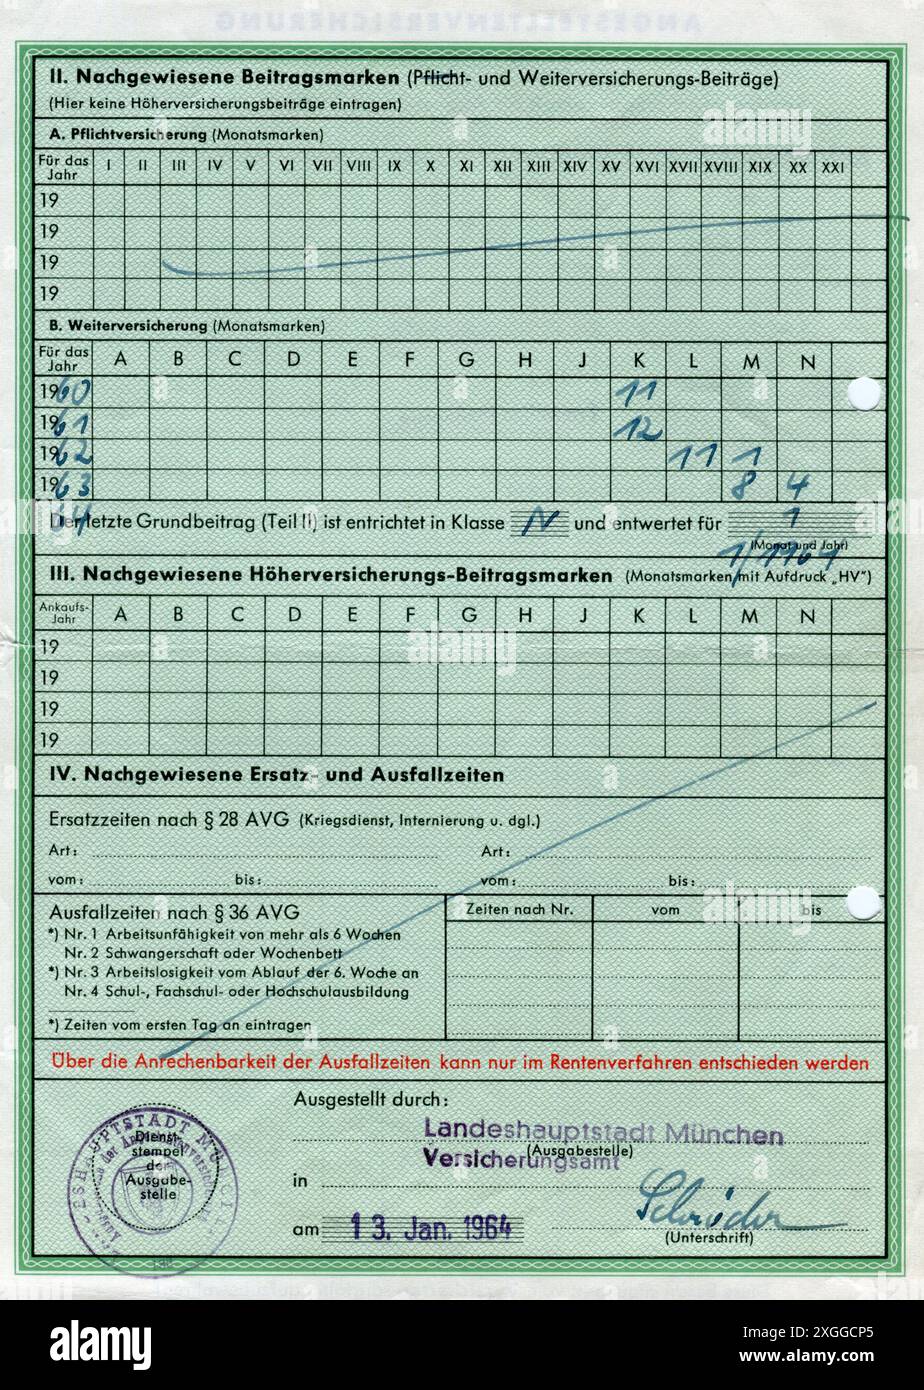 II. Nachgewiesene Beitragsmarken (Pflicht- und Weiterversicherungs-Beiträge)
(Hier keine Höherversicherungsbeiträge eintragen)
A. Pflichtversicherung (Monatsmarken)
Für das Jahr I II III IV V VI VII VIII IX X XI XII XIII XIV XV XVI XVII XVIII XIX XX XXI
19
19
19
19
B. Weiterversicherung (Monatsmarken)
Für das Jahr A B C D E F G H J K L M N
1960 11
1961 12
1962 11 1
1963 8 4
64 1
Der letzte Grundbeitrag (Teil II) ist entrichtet in Klasse N und entwertet für
1/1964
(Monat und Jahr)
III. Nachgewiesene Höherversicherungs-Beitragsmarken (Monatsmarken mit Aufdruck „HV")
Ankaufs-Jahr A B C D E F G H J K L M N
19
19
19
19
IV. Nachgewiesene Ersatz- und Ausfallzeiten
Ersatzzeiten nach § 28 AVG (Kriegsdienst, Internierung u. dgl.)
Art: Art:
vom: bis: vom: bis:
Ausfallzeiten nach § 36 AVG Zeiten nach Nr. vom bis
*) Nr. 1 Arbeitsunfähigkeit von mehr als 6 Wochen
Nr. 2 Schwangerschaft oder Wochenbett
*) Nr. 3 Arbeitslosigkeit vom Ablauf der 6. Woche an
Nr. 4 Schul-, Fachschul- oder Hochschulausbildung
*) Zeiten vom ersten Tag an eintragen
Über die Anrechenbarkeit der Ausfallzeiten kann nur im Rentenverfahren entschieden werden
Ausgestellt durch:
Landeshauptstadt München
(Ausgabestelle)
Versicherungsamt
Dienst-
stempel
der
Ausgabe-
stelle
in
am 13. Jan. 1964 Schröder
(Unterschrift)
alamy
Image ID: 2XGGCP5
www.alamy.com